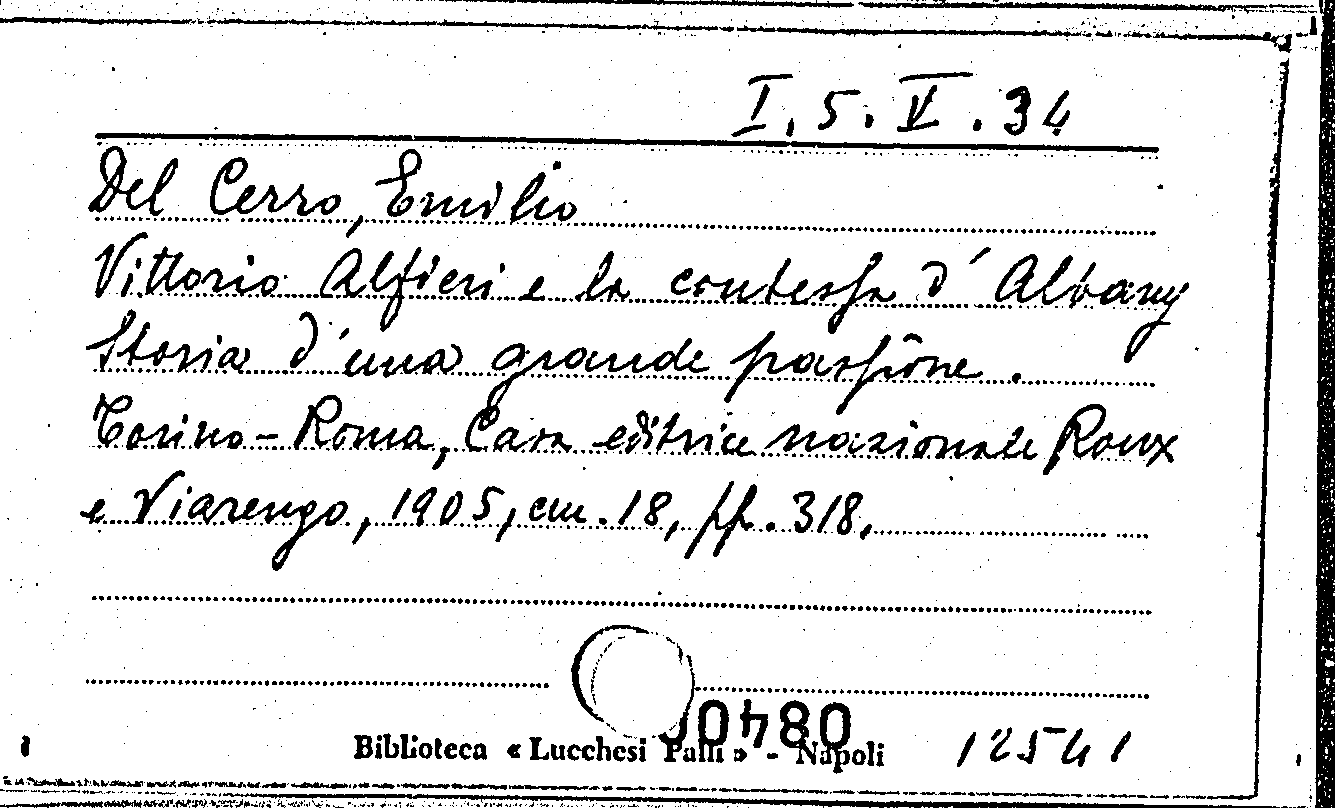 I. 5. V. 34
Del Cerro, Emilio
Vittorio Alfieri e la contessa d'Albany
Storia d'una grande passione.
Torino-Roma, Casa editrice nazionale Roux
e Viarengo, 1905, cm. 18, pp. 318.
Biblioteca « Lucchesi Palli » - Napoli
12541